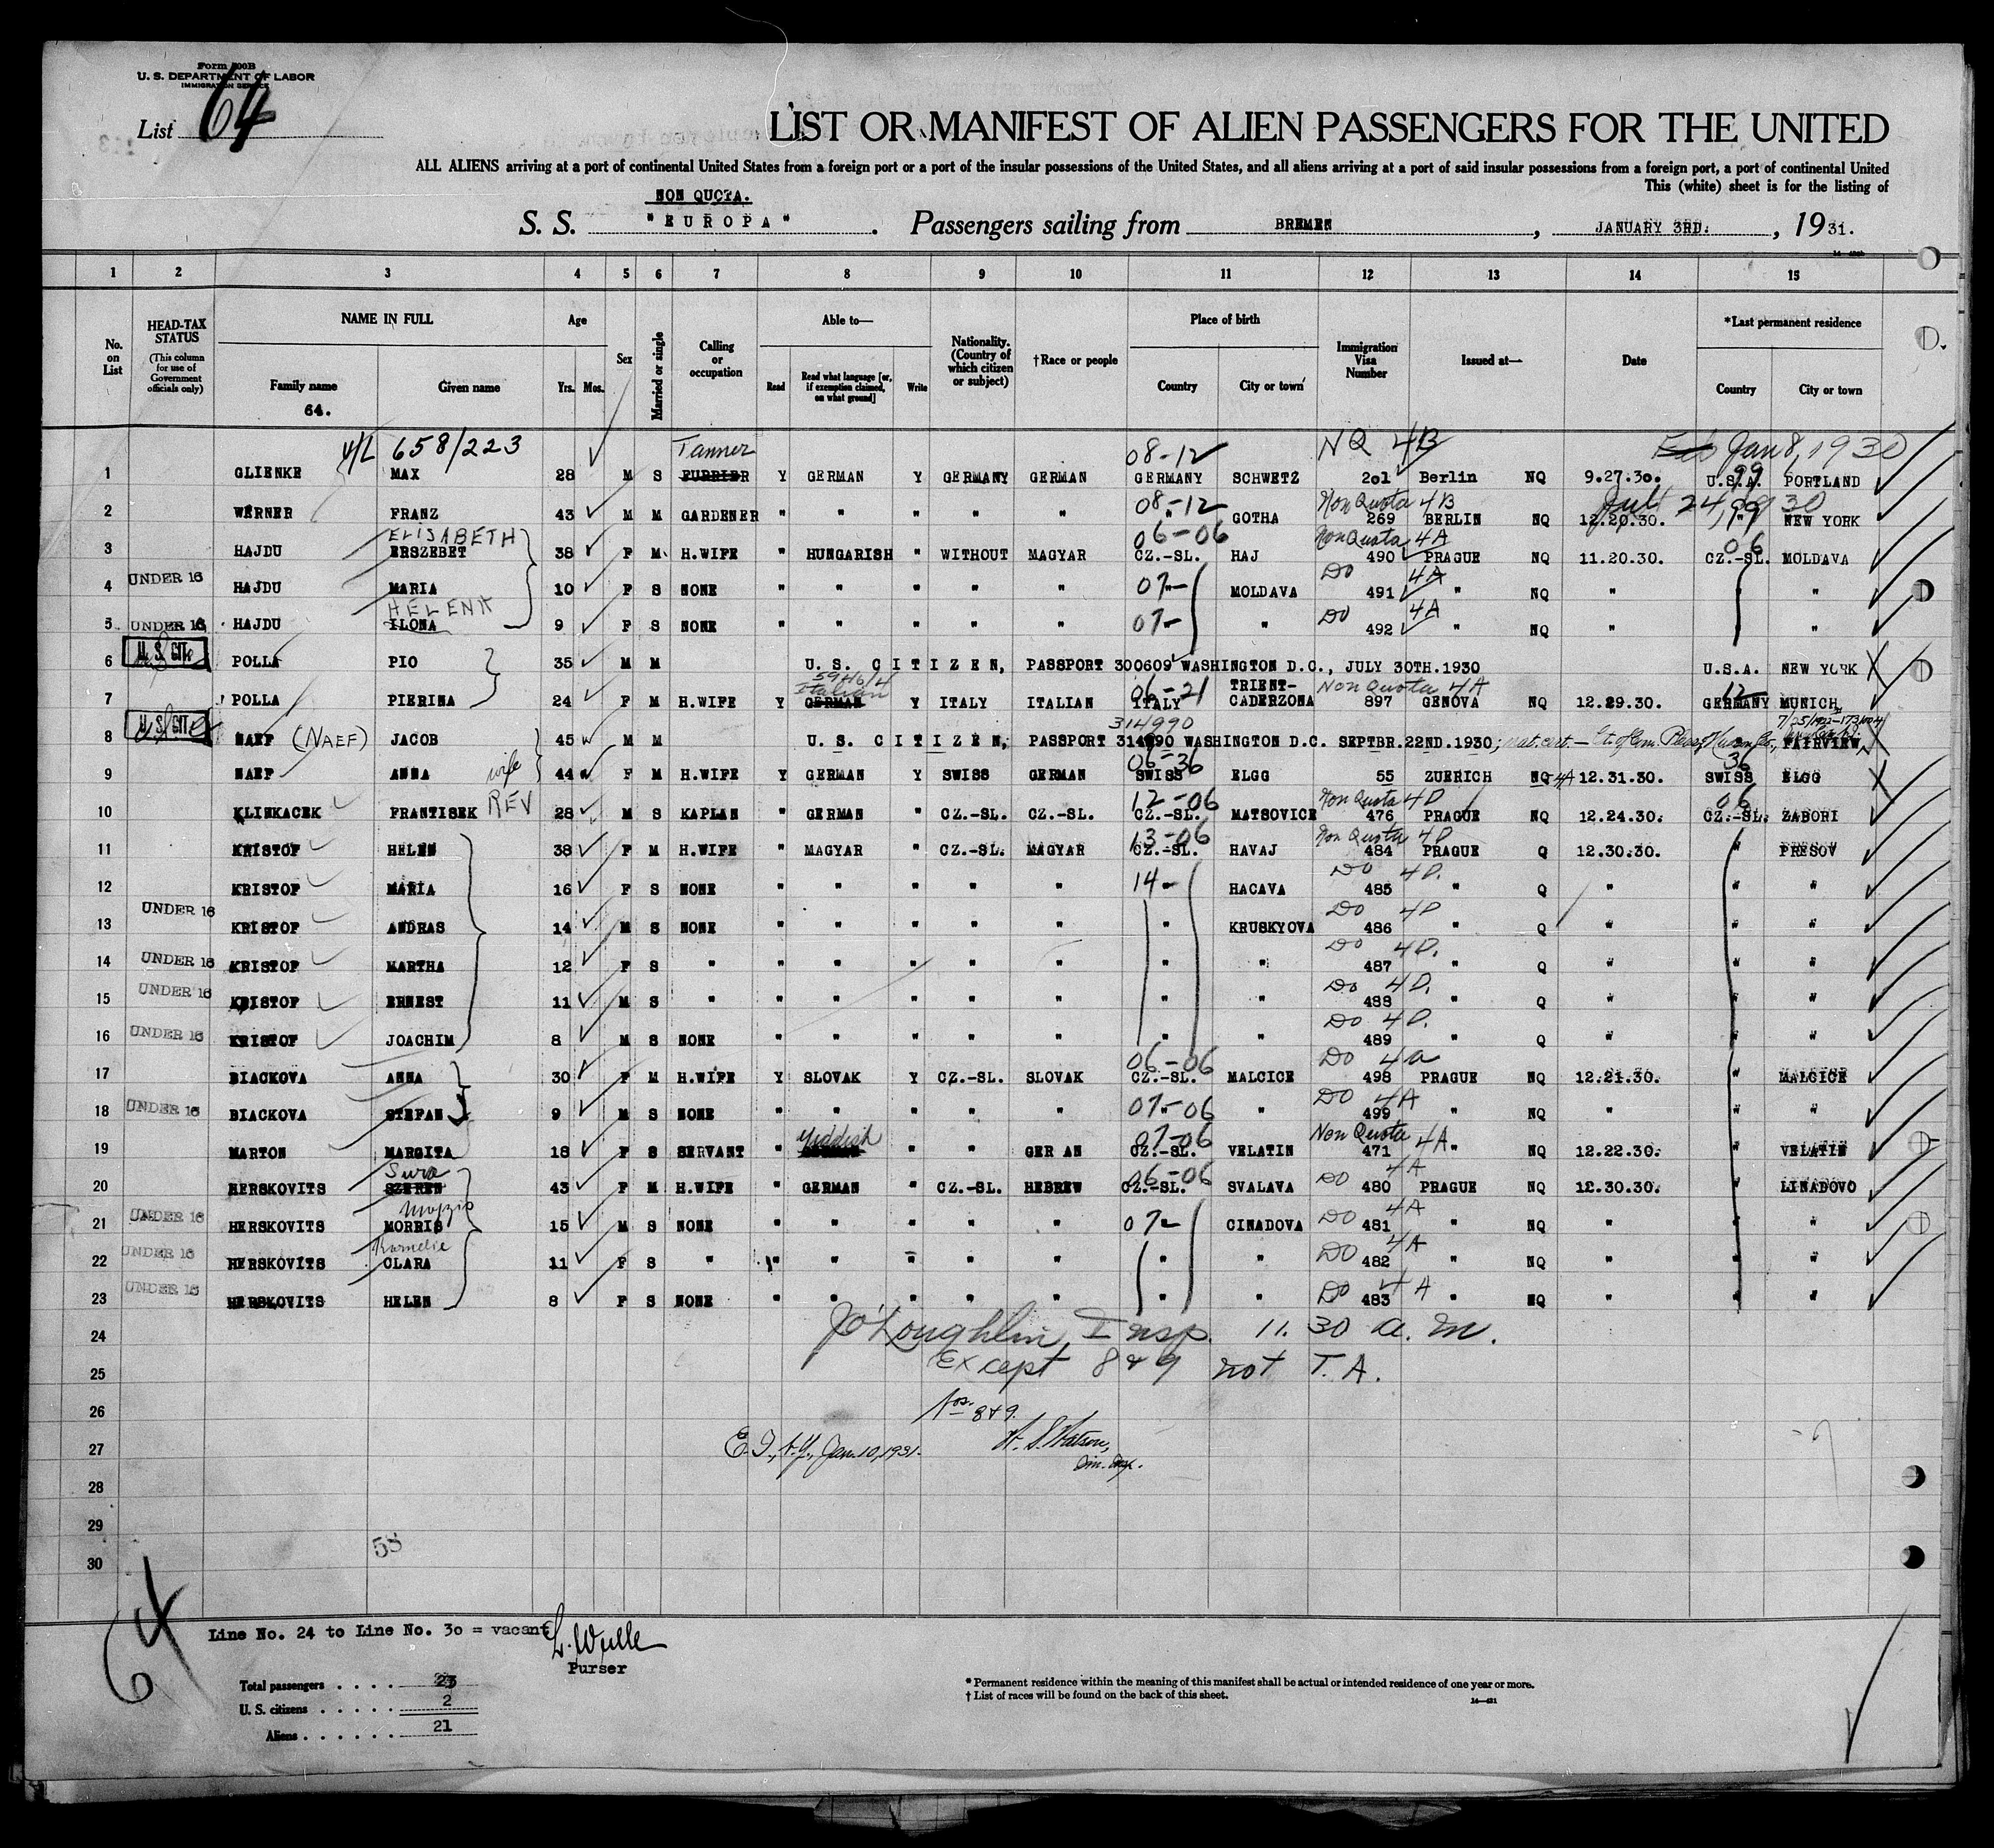 Form 500B
U. S. DEPARTMENT OF LABOR
IMMIGRATION SERVICE
List 64
LIST OR MANIFEST OF ALIEN PASSENGERS FOR THE UNITED
ALL ALIENS arriving at a port of continental United States from a foreign port or a port of the insular possessions of the United States, and all aliens arriving at a port of said insular possessions from a foreign port, a port of continental United
This (white) sheet is for the listing of
NON QUOTA.
S. S. "EUROPA". Passengers sailing from BREMEN, JANUARY 3RD., 1931.
1 2 3 4 5 6 7 8 9 10 11 12 13 14 15
No. on List
HEAD-TAX STATUS (This column for use of Government officials only)
NAME IN FULL
Family name
64.
Given name
Age
Yrs. Mos.
Sex
Married or single
Calling or occupation
Able to—
Read
Read what language [or, if exemption claimed, on what ground]
Write
Nationality. (Country of which citizen or subject)
†Race or people
Place of birth
Country
City or town
Immigration Visa Number
Issued at—
Date
*Last permanent residence
Country
City or town
658/223 Tanner 08-12 NQ 4B Jan 8, 1930
1 GLIENKE MAX 28 M S FURRIER Y GERMAN Y GERMANY GERMAN GERMANY SCHWETZ 201 Berlin NQ 9.27.30. U.S.A. 99 PORTLAND
08-12 Non Quota 4B 24, 1930
2 WERNER FRANZ 43 M M GARDENER " " " " " " GOTHA 269 BERLIN NQ 12.20.30. " 99 NEW YORK
ELISABETH 06-06 Non Quota 4A 06
3 HAJDU ERSZEBET 38 F M H.WIFE " HUNGARISH " WITHOUT MAGYAR CZ.-SL. HAJ 490 PRAGUE NQ 11.20.30. CZ.-SL. MOLDAVA
UNDER 16 07- Do 4A
4 HAJDU MARIA 10 F S NONE " " " " " " MOLDAVA 491 " NQ " "
HELENA 07- Do 4A
5 UNDER 16 HAJDU ILONA 9 F S NONE " " " " " " 492 " NQ " "
U. S. CIT.
6 POLLA PIO 35 M M U. S. CITIZEN, PASSPORT 300609 WASHINGTON D.C., JULY 30TH.1930 U.S.A. NEW YORK
Italian 06-21 TRIENT- Non Quota 4A 12
7 POLLA PIERINA 24 F M H.WIFE Y GERMAN Y ITALY ITALIAN ITALY CADERZONA 897 GENOVA NQ 12.29.30. GERMANY MUNICH
U. S. CIT. 314990
8 NAEF (NAEF) JACOB 45 M M U. S. CITIZEN, PASSPORT 314990 WASHINGTON D.C. SEPTBR.22ND.1930; nat. cert. FAIRVIEW,
wife 06-36 36
9 NAEF ANNA 44 F M H.WIFE Y GERMAN Y SWISS GERMAN SWISS ELGG 55 ZUERICH NQ-4A 12.31.30. SWISS ELGG
REV 12-06 Non Quota 4D 06
10 KLINKACEK FRANTISEK 28 M S KAPLAN " GERMAN " CZ.-SL. CZ.-SL. CZ.-SL. MATSOVICE 476 PRAGUE NQ 12.24.30. CZ.-SL. ZABORI
13-06 Non Quota 4D
11 KRISTOF HELEN 38 F M H.WIFE " MAGYAR " CZ.-SL. MAGYAR CZ.-SL. HAVAJ 484 PRAGUE Q 12.30.30. " PRESOV
14- Do 4D.
12 KRISTOF MARIA 16 F S NONE " " " " " HACAVA 485 " Q " " "
UNDER 16 Do 4D
13 KRISTOF ANDRAS 14 M S NONE " " " " " " KRUSKYOVA 486 " Q " " "
UNDER 16 Do 4D.
14 KRISTOF MARTHA 12 F S " " " " " " " " 487 " Q " " "
UNDER 16 Do 4D.
15 KRISTOF ERNEST 11 M S " " " " " " " " 488 " Q " " "
UNDER 16 Do 4D.
16 KRISTOF JOACHIM 8 M S NONE " " " " " " " 489 " Q " " "
06-06 Do 4A
17 BIACKOVA ANNA 30 F M H.WIFE Y SLOVAK Y CZ.-SL. SLOVAK CZ.-SL. MALCICE 498 PRAGUE NQ 12.21.30. " MALCICE
UNDER 16 07-06 Do 4A
18 BIACKOVA STEFAN 9 M S NONE " " " " " " " 499 " NQ " " "
Yiddish 07-06 Non Quota 4A
19 MARTON MARGITA 18 F S SERVANT " " " GER AN CZ.-SL. VELATIN 471 " NQ 12.22.30. " VELATIN
Sura 06-06 Do 4A
20 HERSKOVITS SZEREN 43 F M H.WIFE " GERMAN " CZ.-SL. HEBREW CZ.-SL. SVALAVA 480 PRAGUE NQ 12.30.30. " LINADOVO
UNDER 16 07- Do 4A
21 HERSKOVITS MORRIS 15 M S NONE " " " " " CINADOVA 481 " NQ " " "
UNDER 16 Kornelie Do 4A
22 HERSKOVITS CLARA 11 F S " " " " " " " " 482 " NQ " " "
UNDER 16 Do 4A
23 HERSKOVITS HELEN 8 F S NONE " " " " " " " 483 " NQ " " "
24 J O'Loughlin Insp. 11.30 a.m.
25 Except 8 & 9 not T.A.
26 Nos. 8 & 9.
27 E. I., N.Y., Jan. 10, 1931. H. S. Watson, Im. Insp.
28
29
58
30
64
Line No. 24 to Line No. 30 = vacant
L. Wulle
Purser
Total passengers . . . . 23
U. S. citizens . . . . . 2
Aliens . . . . . . 21
* Permanent residence within the meaning of this manifest shall be actual or intended residence of one year or more.
† List of races will be found on the back of this sheet.